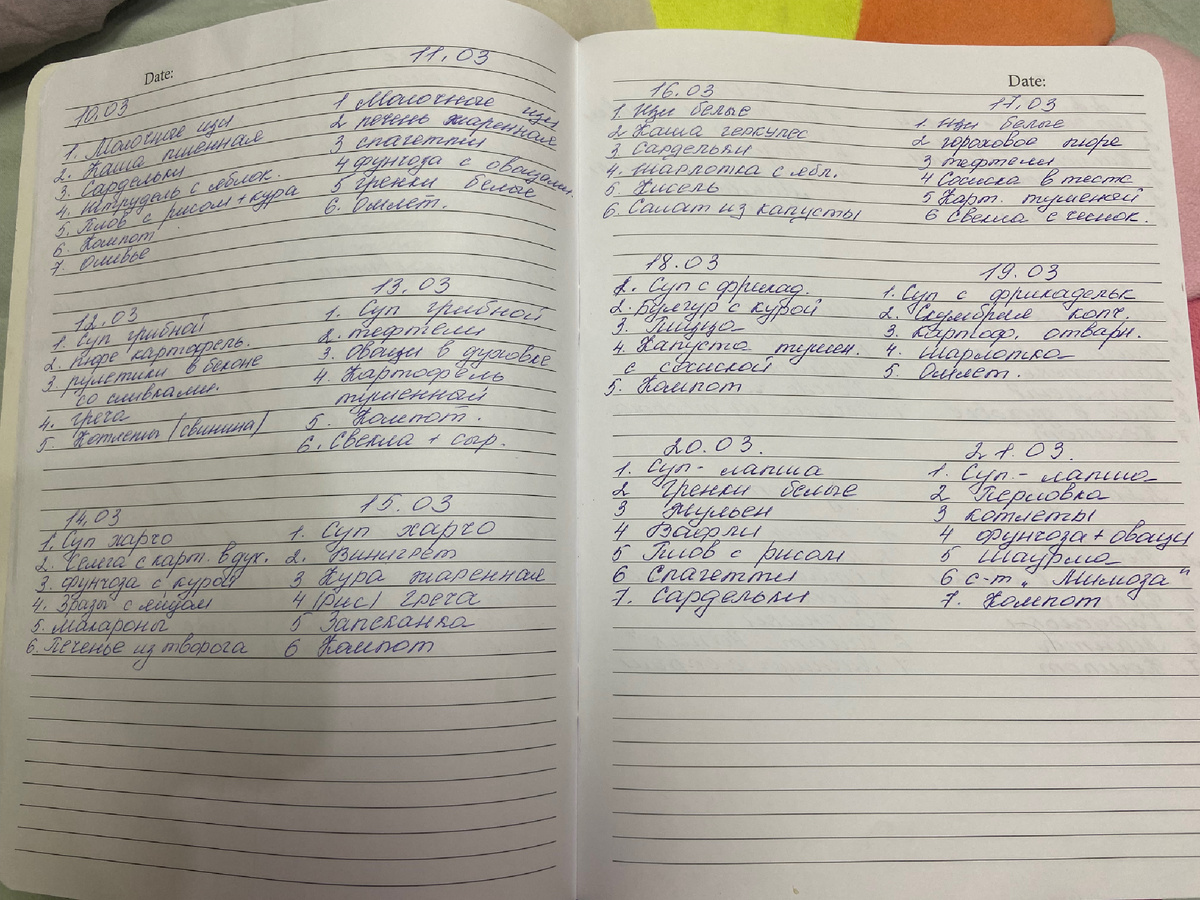 Date:
10.03
1. Молочное щи
2. Каша пшенная
3. Сардельки
4. Штрудель с яблок.
5. Плов с рисом + кура
6. Компот
7. Оливье
11.03
1 Молочное щи
2 печень жаренная
3 спагетти
4 фунчоза с овощами
5 Гренки белые
6. Омлет.
12.03
1. Суп грибной
2. Пюре картофель.
3. рулетики в беконе
со сливками.
4. греча
5. Котлеты (свинина)
13.03
1. Суп грибной
2. тефтели
3. Овощи в духовке
4. Картофель
тушенный
5. Компот.
6. Свекла + сыр.
14.03
1. Суп харчо
2. Семга с карт. в дух.
3. фунчоза с курой
4. Зразы с яйцом
5. макароны
6. Печенье из творога
15.03
1. Суп харчо
2. Винигрет
3 Кура жаренная
4 (рис) греча
5 Запеканка
6 Компот
Date:
16.03
1. Щи белые
2 Каша геркулес
3 Сардельки
4. Шарлотка с ябл.
5. Кисель
6. Салат из капусты
17.03
1. Щи белые
2 гороховое пюре
3 тефтели
4 Сосиска в тесте
5 Карт. тушеной
6 Свекла с чеснок.
18.03
1. Суп с фрикад.
2. Булгур с курой
3. Пицца
4. Капуста тушен.
с сосиской
5. Компот
19.03
1. Суп с фрикадельк
2. Скумбрия копч.
3. Картоф. отварн.
4. Шарлотка
5. Омлет.
20.03.
1. Суп-лапша
2 Гренки белые
3 Жульен
4 Вафли
5 Плов с рисом
6 Спагетти
7. Сардельки
21.03.
1. Суп-лапша
2 Перловка
3 котлеты
4 фунчоза + овощи
5 Шаурма
6 с-т "Мимоза"
7. Компот